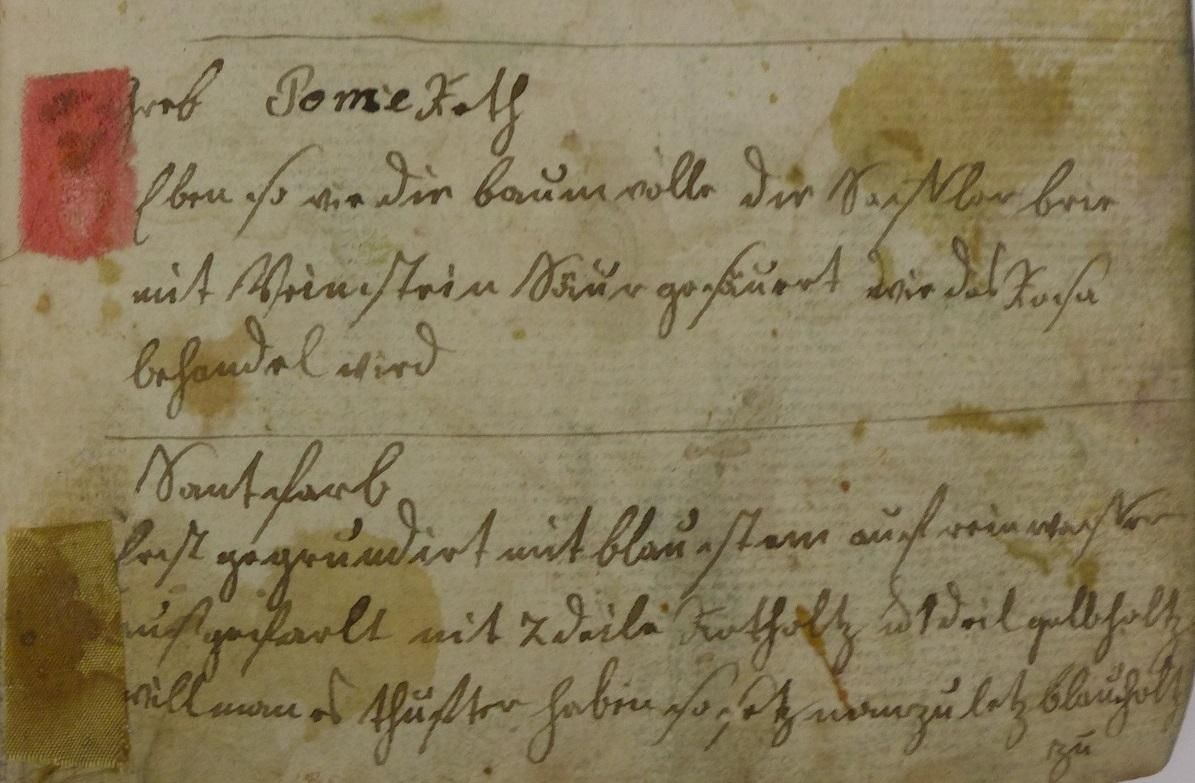 Farb Pome Roth
Eben so wie die baumwolle die Saflor brie
mit Weinstein Säur gesäuert wie das Rosa
behandel wird
Santfarb
Erst gegrundirt mit blaustem auf rein waßer
ausgefarlt mit 2 deile Rothholtz u 1 deil gelbholtz
will man es thuster haben so setz man zu letz blauholtz
zu